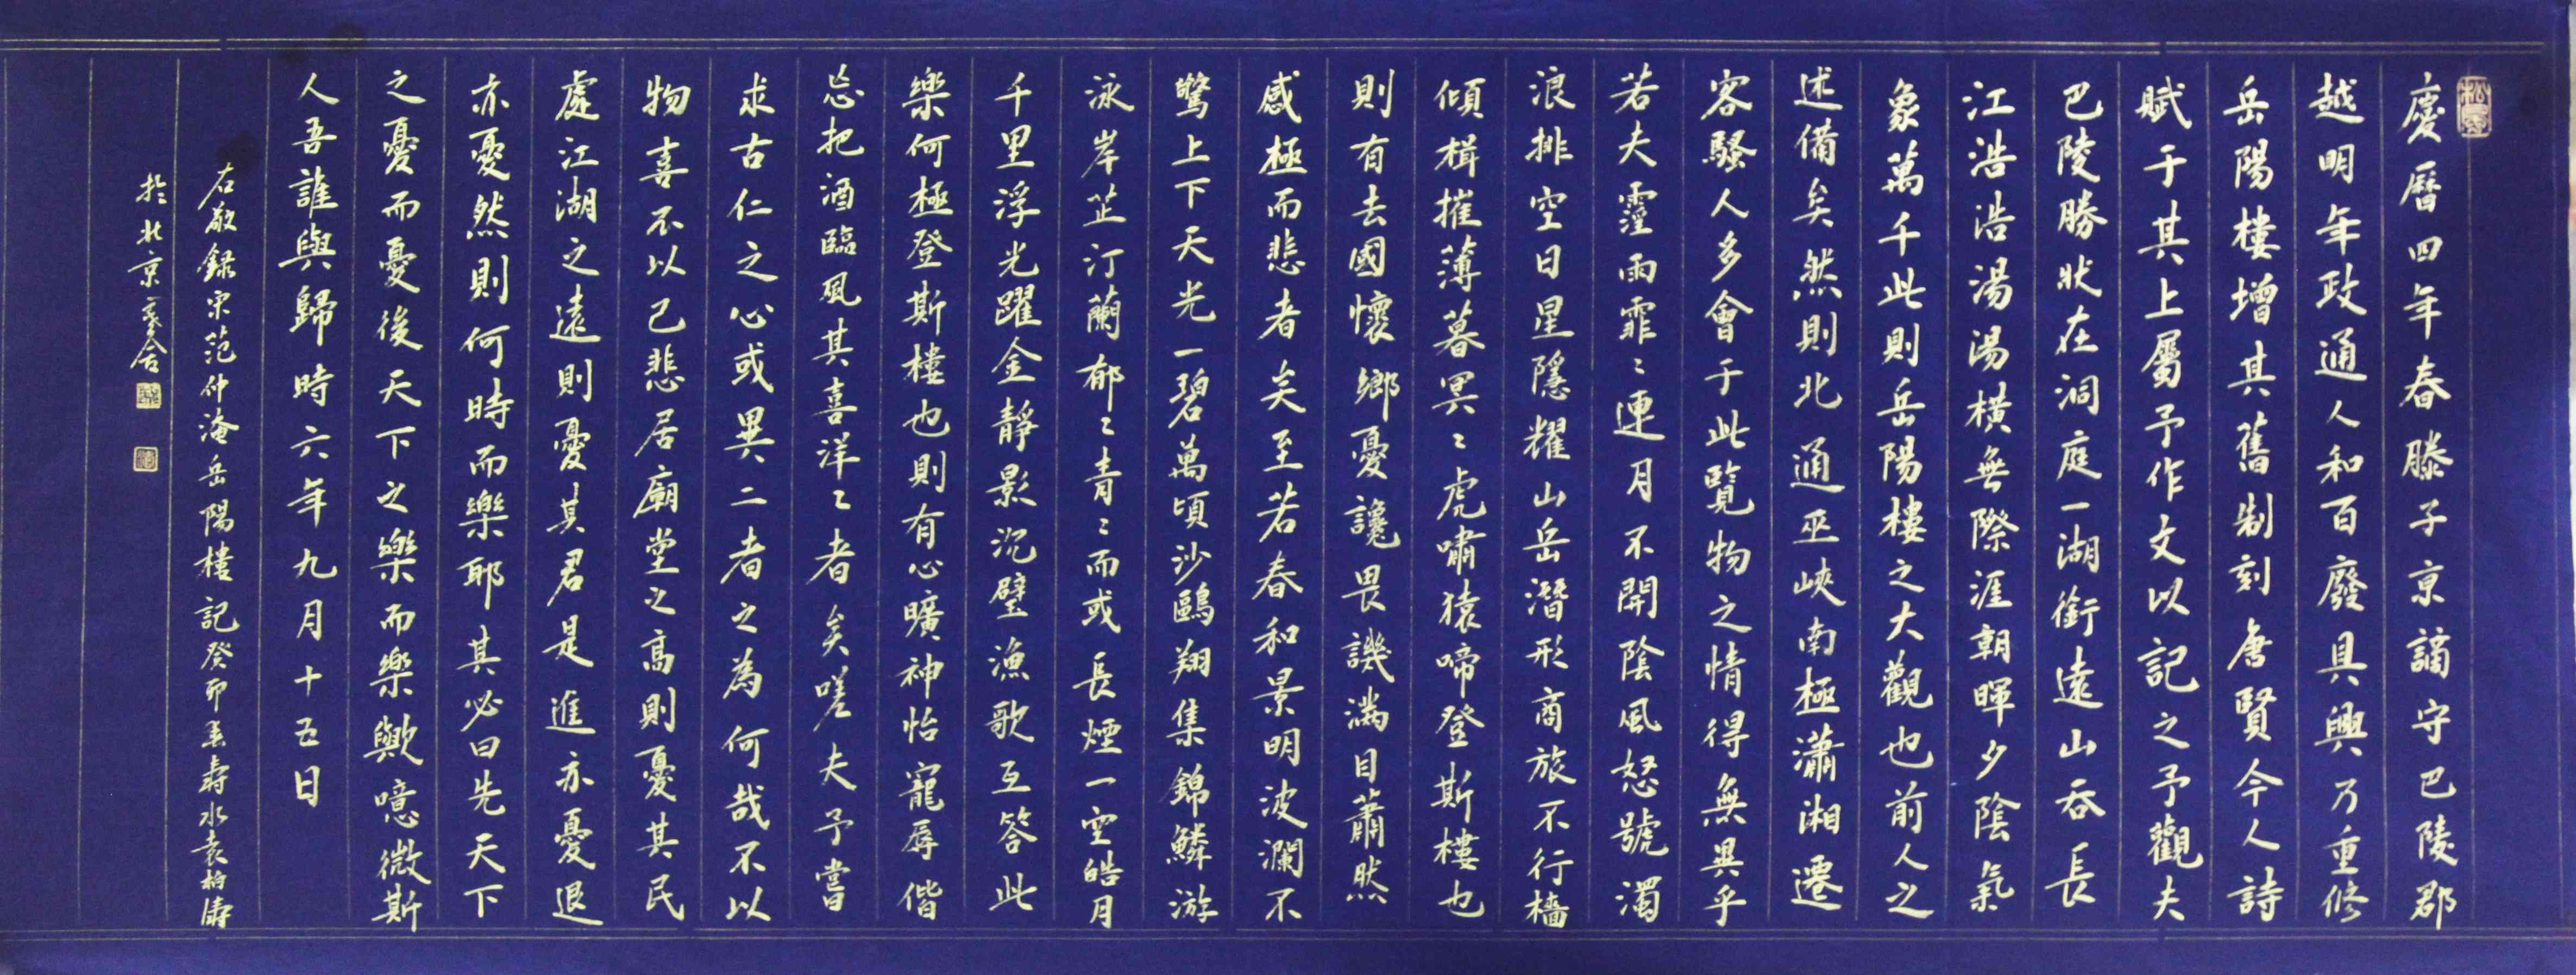 慶曆四年春滕子京謫守巴陵郡
越明年政通人和百廢具興乃重修
岳陽樓增其舊制刻唐賢今人詩
賦于其上屬予作文以記之予觀夫
巴陵勝狀在洞庭一湖銜遠山吞長
江浩浩湯湯橫無際涯朝暉夕陰氣
象萬千此則岳陽樓之大觀也前人之
述備矣然則北通巫峽南極瀟湘遷
客騷人多會于此覽物之情得無異乎
若夫霪雨霏〻連月不開陰風怒號濁
浪排空日星隱耀山岳潛形商旅不行檣
傾楫摧薄暮冥〻虎嘯猿啼登斯樓也
則有去國懷鄉憂讒畏譏滿目蕭然
感極而悲者矣至若春和景明波瀾不
驚上下天光一碧萬頃沙鷗翔集錦鱗游
泳岸芷汀蘭郁〻青〻而或長煙一空皓月
千里浮光躍金靜影沉璧漁歌互答此
樂何極登斯樓也則有心曠神怡寵辱偕
忘把酒臨風其喜洋〻者矣嗟夫予嘗
求古仁之心或異二者之為何哉不以
物喜不以己悲居廟堂之高則憂其民
處江湖之遠則憂其君是進亦憂退
亦憂然則何時而樂耶其必曰先天下
之憂而憂後天下之樂而樂歟噫微斯
人吾誰與歸時六年九月十五日
右敬錄宋范仲淹岳陽樓記癸卯春壽水袁柏濤
於北京寓舍